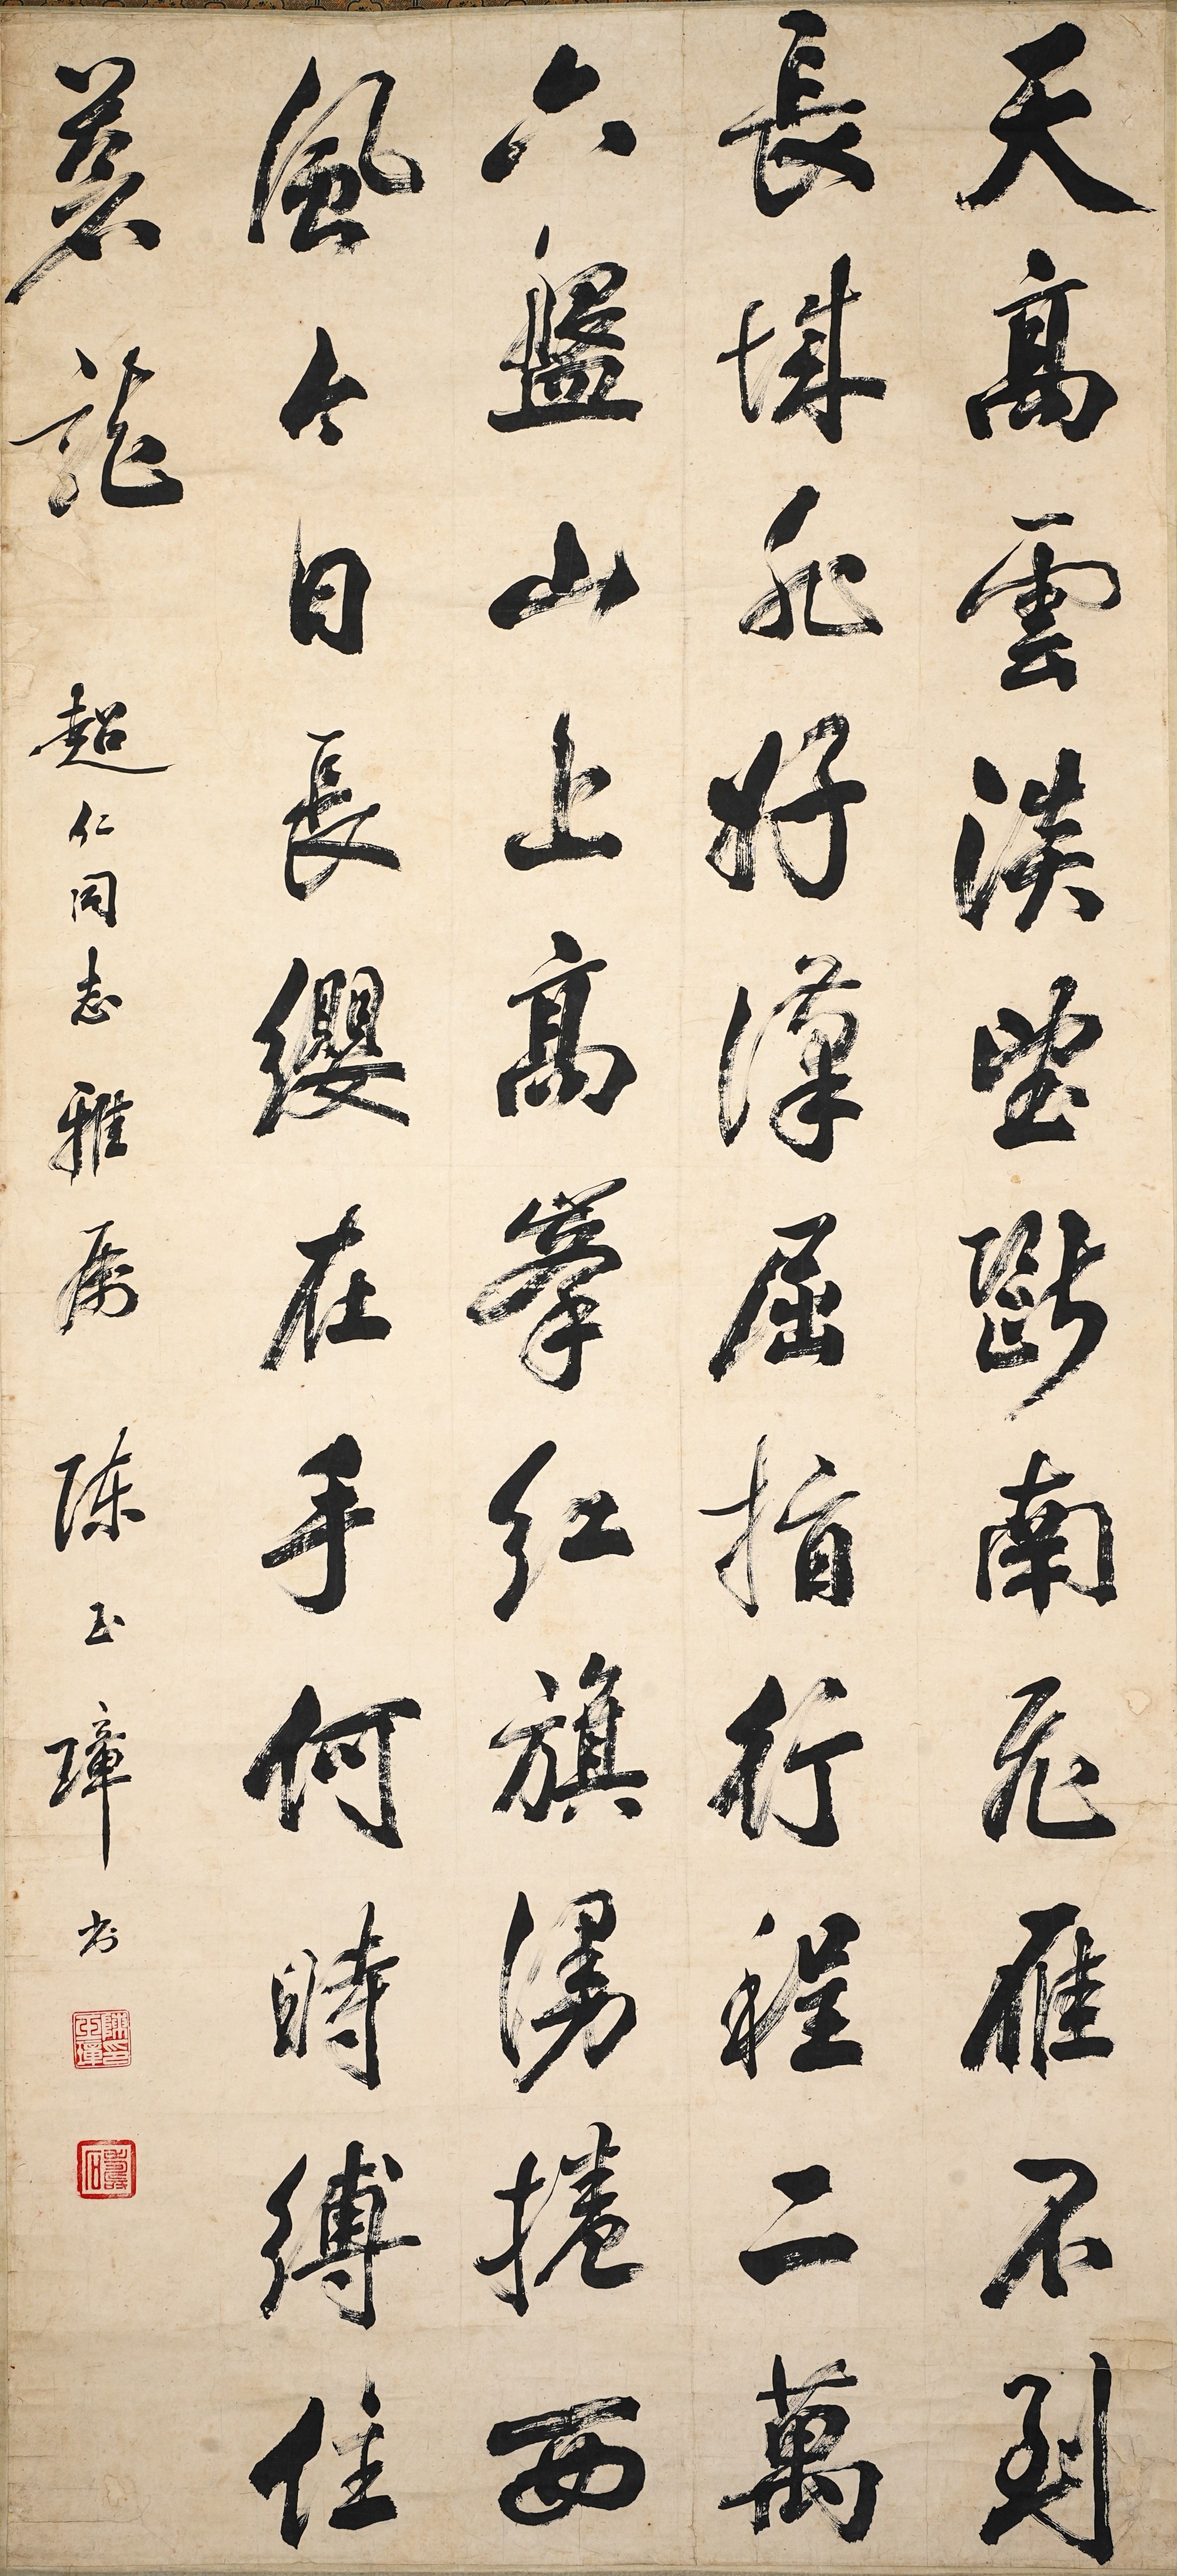 天高雲淡望斷南飛雁不到
長城非好漢屈指行程二萬
六盤山上高峯紅旗漫捲西
風今日長纓在手何時縛住
蒼龍 超仁同志雅属 陈玉璋书
陳玉璋印